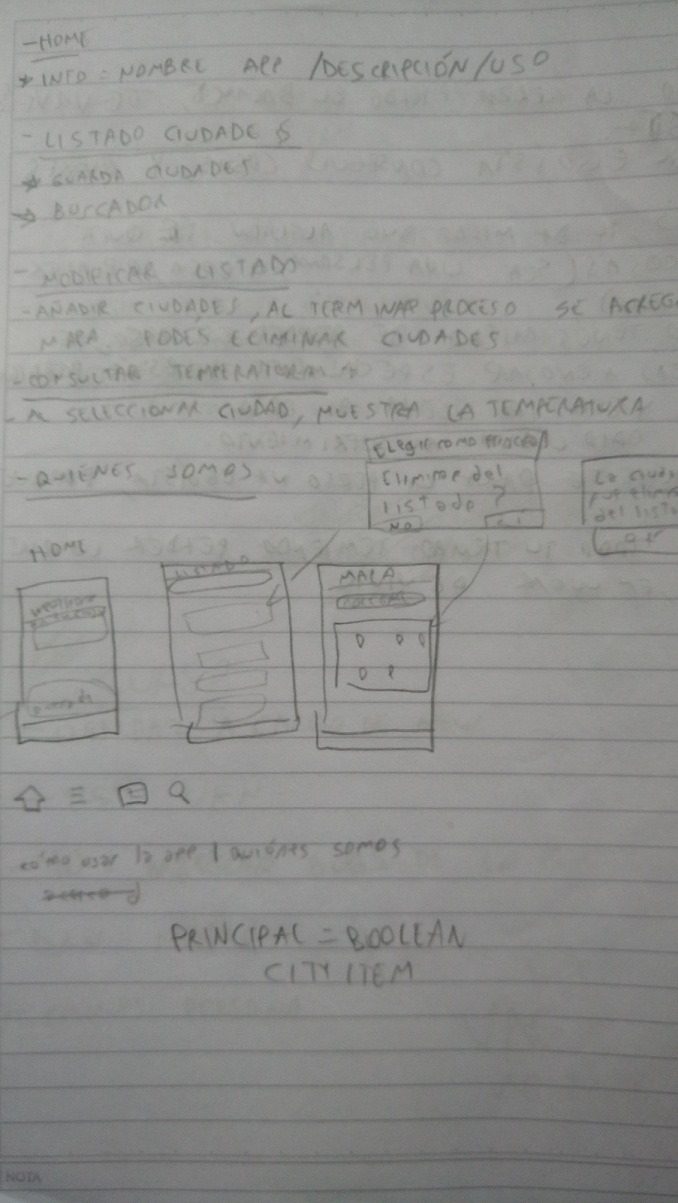 - HOME
* INFO = NOMBRE APP / DESCRIPCIÓN / USO
- LISTADO CIUDADES
* GUARDA CIUDADES
* BUSCADOR
- MODIFICAR LISTADO
- AÑADIR CIUDADES, AL TERMINAR PROCESO SE AGREG
MAPA. PODES ELIMINAR CIUDADES
- CONSULTAR TEMPERATURA
- A SELECCIONAR CIUDAD, MUESTRA LA TEMPERATURA
- QUIÉNES SOMOS
Elegir como
Eliminar del
listado?
NO
La ciuda
del lista
OK
HOME
LISTADO
MAPA
cómo usar la app | quiénes somos
PRINCIPAL = BOOLEAN
CITY ITEM
NOTA